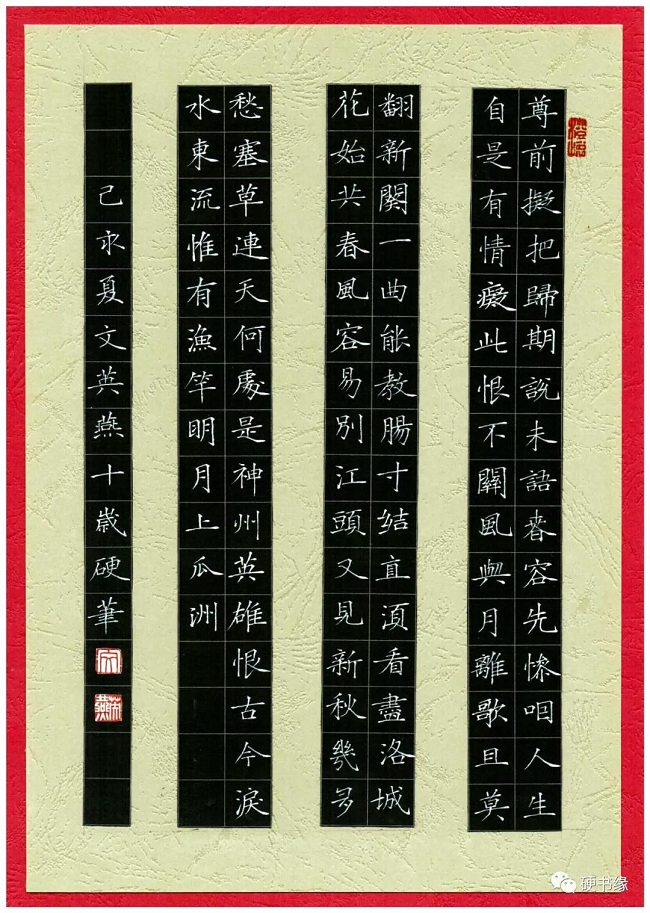 尊前擬把歸期說未語春容先慘咽人生
自是有情癡此恨不關風與月離歌且莫
翻新闋一曲能教腸寸结直須看盡洛城
花始共春風容易別江頭又見新秋幾多
愁塞草連天何處是神州英雄恨古今淚
水東流惟有漁竿明月上瓜洲
己亥夏文英燕十歲硬筆
英燕
硬书缘